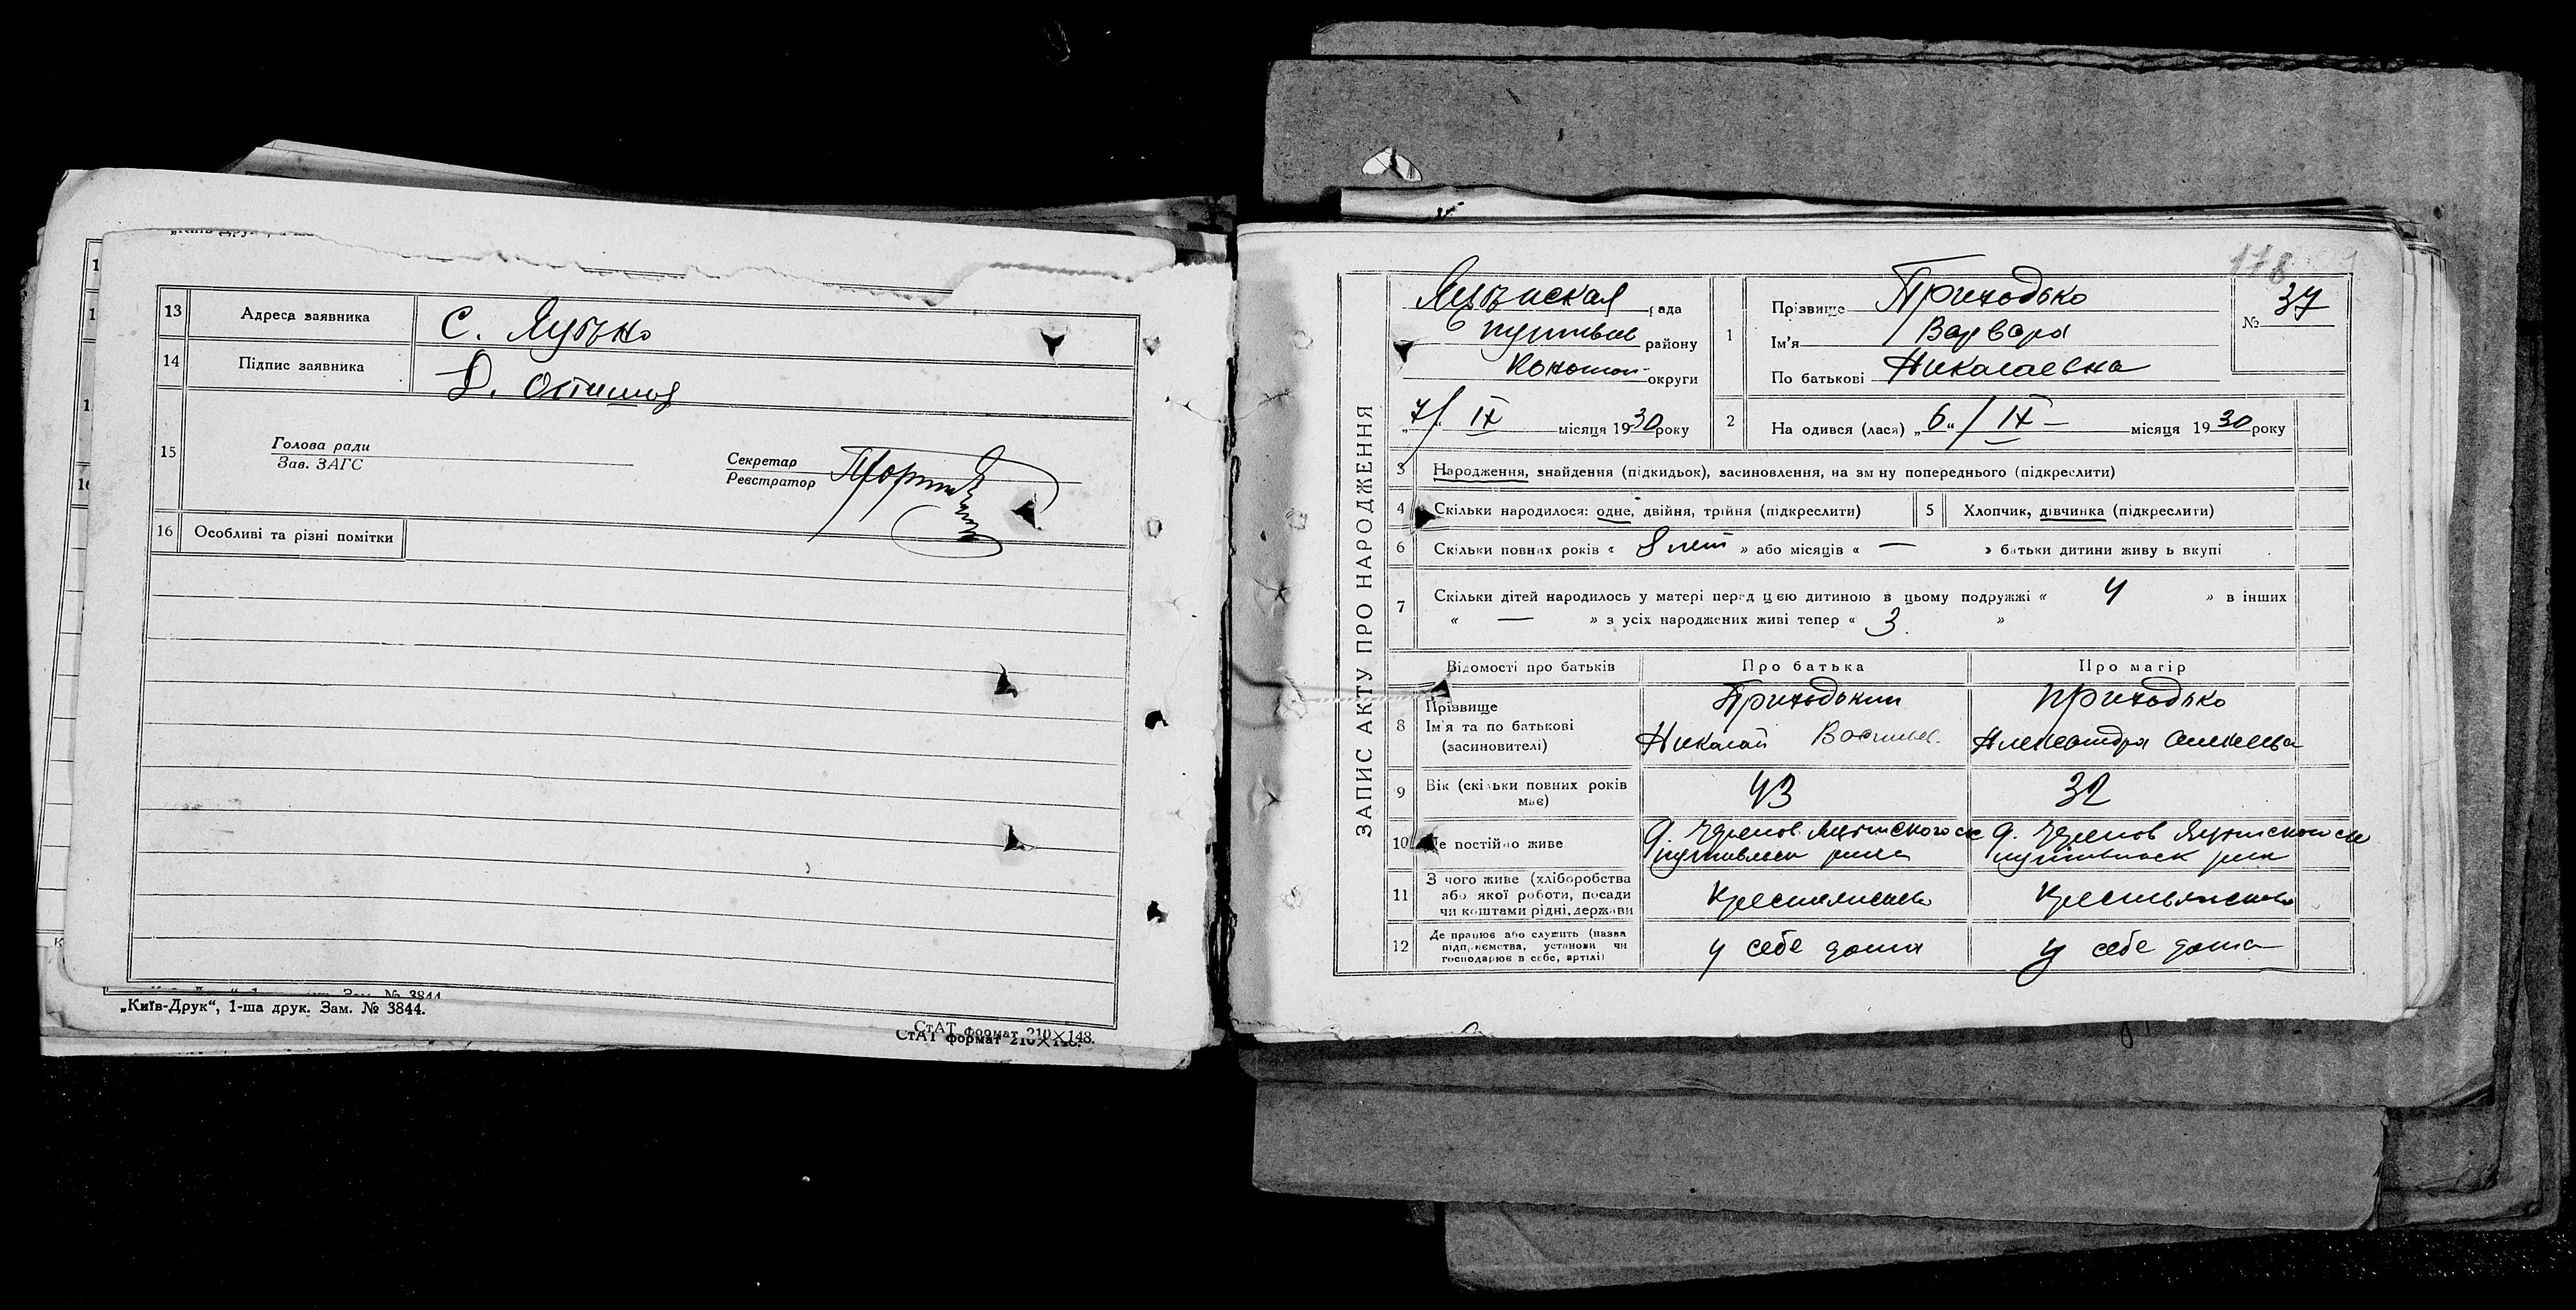 13 Адреса заявника С. Яцыно
14 Підпис заявника
15 Голова ради
Зав. ЗАГС
Секретар
Реєстратор
16 Особливі та різні помітки
„Київ-Друк“, 1-ша друк. Зам. № 3844.
СтАТ формат 210×148.
178
ЗАПИС АКТУ ПРО НАРОДЖЕННЯ
рада
району
Коношоп округи
„7“ IX місяця 1930 року
1 Прізвище Приходько
Ім'я Варвара
По батькові Николаевна
№ 37
2 На одився (лася) „6“ / IX – місяця 1930 року
3 Народження, знайдення (підкидьок), засиновлення, на зм ну попереднього (підкреслити)
4 Скільки народилося: одне, двійня, трійня (підкреслити)
5 Хлопчик, дівчинка (підкреслити)
6 Скільки повних років « 8 лет » або місяців « — » батьки дитини живу ь вкупі
7 Скільки дітей народилось у матері перед цією дитиною в цьому подружжі « 4 » в інших
« — » з усіх народжених живі тепер « 3 »
Відомості про батьків Про батька Про матір
8 Прізвище
Ім'я та по батькові
(засиновителі)
Приходькин
Николай Васильев.
Приходько
Александра Алексеевна
9 Вік (скільки повних років має) 43 32
10 Де постійно живе
11 З чого живе (хліборобства
або якої роботи, посади
чи коштами рідні, держави
12 Де працює або служить (назва
підприємства, установи чи
господарює в себе, артілі)
у себе дома
у себе дома